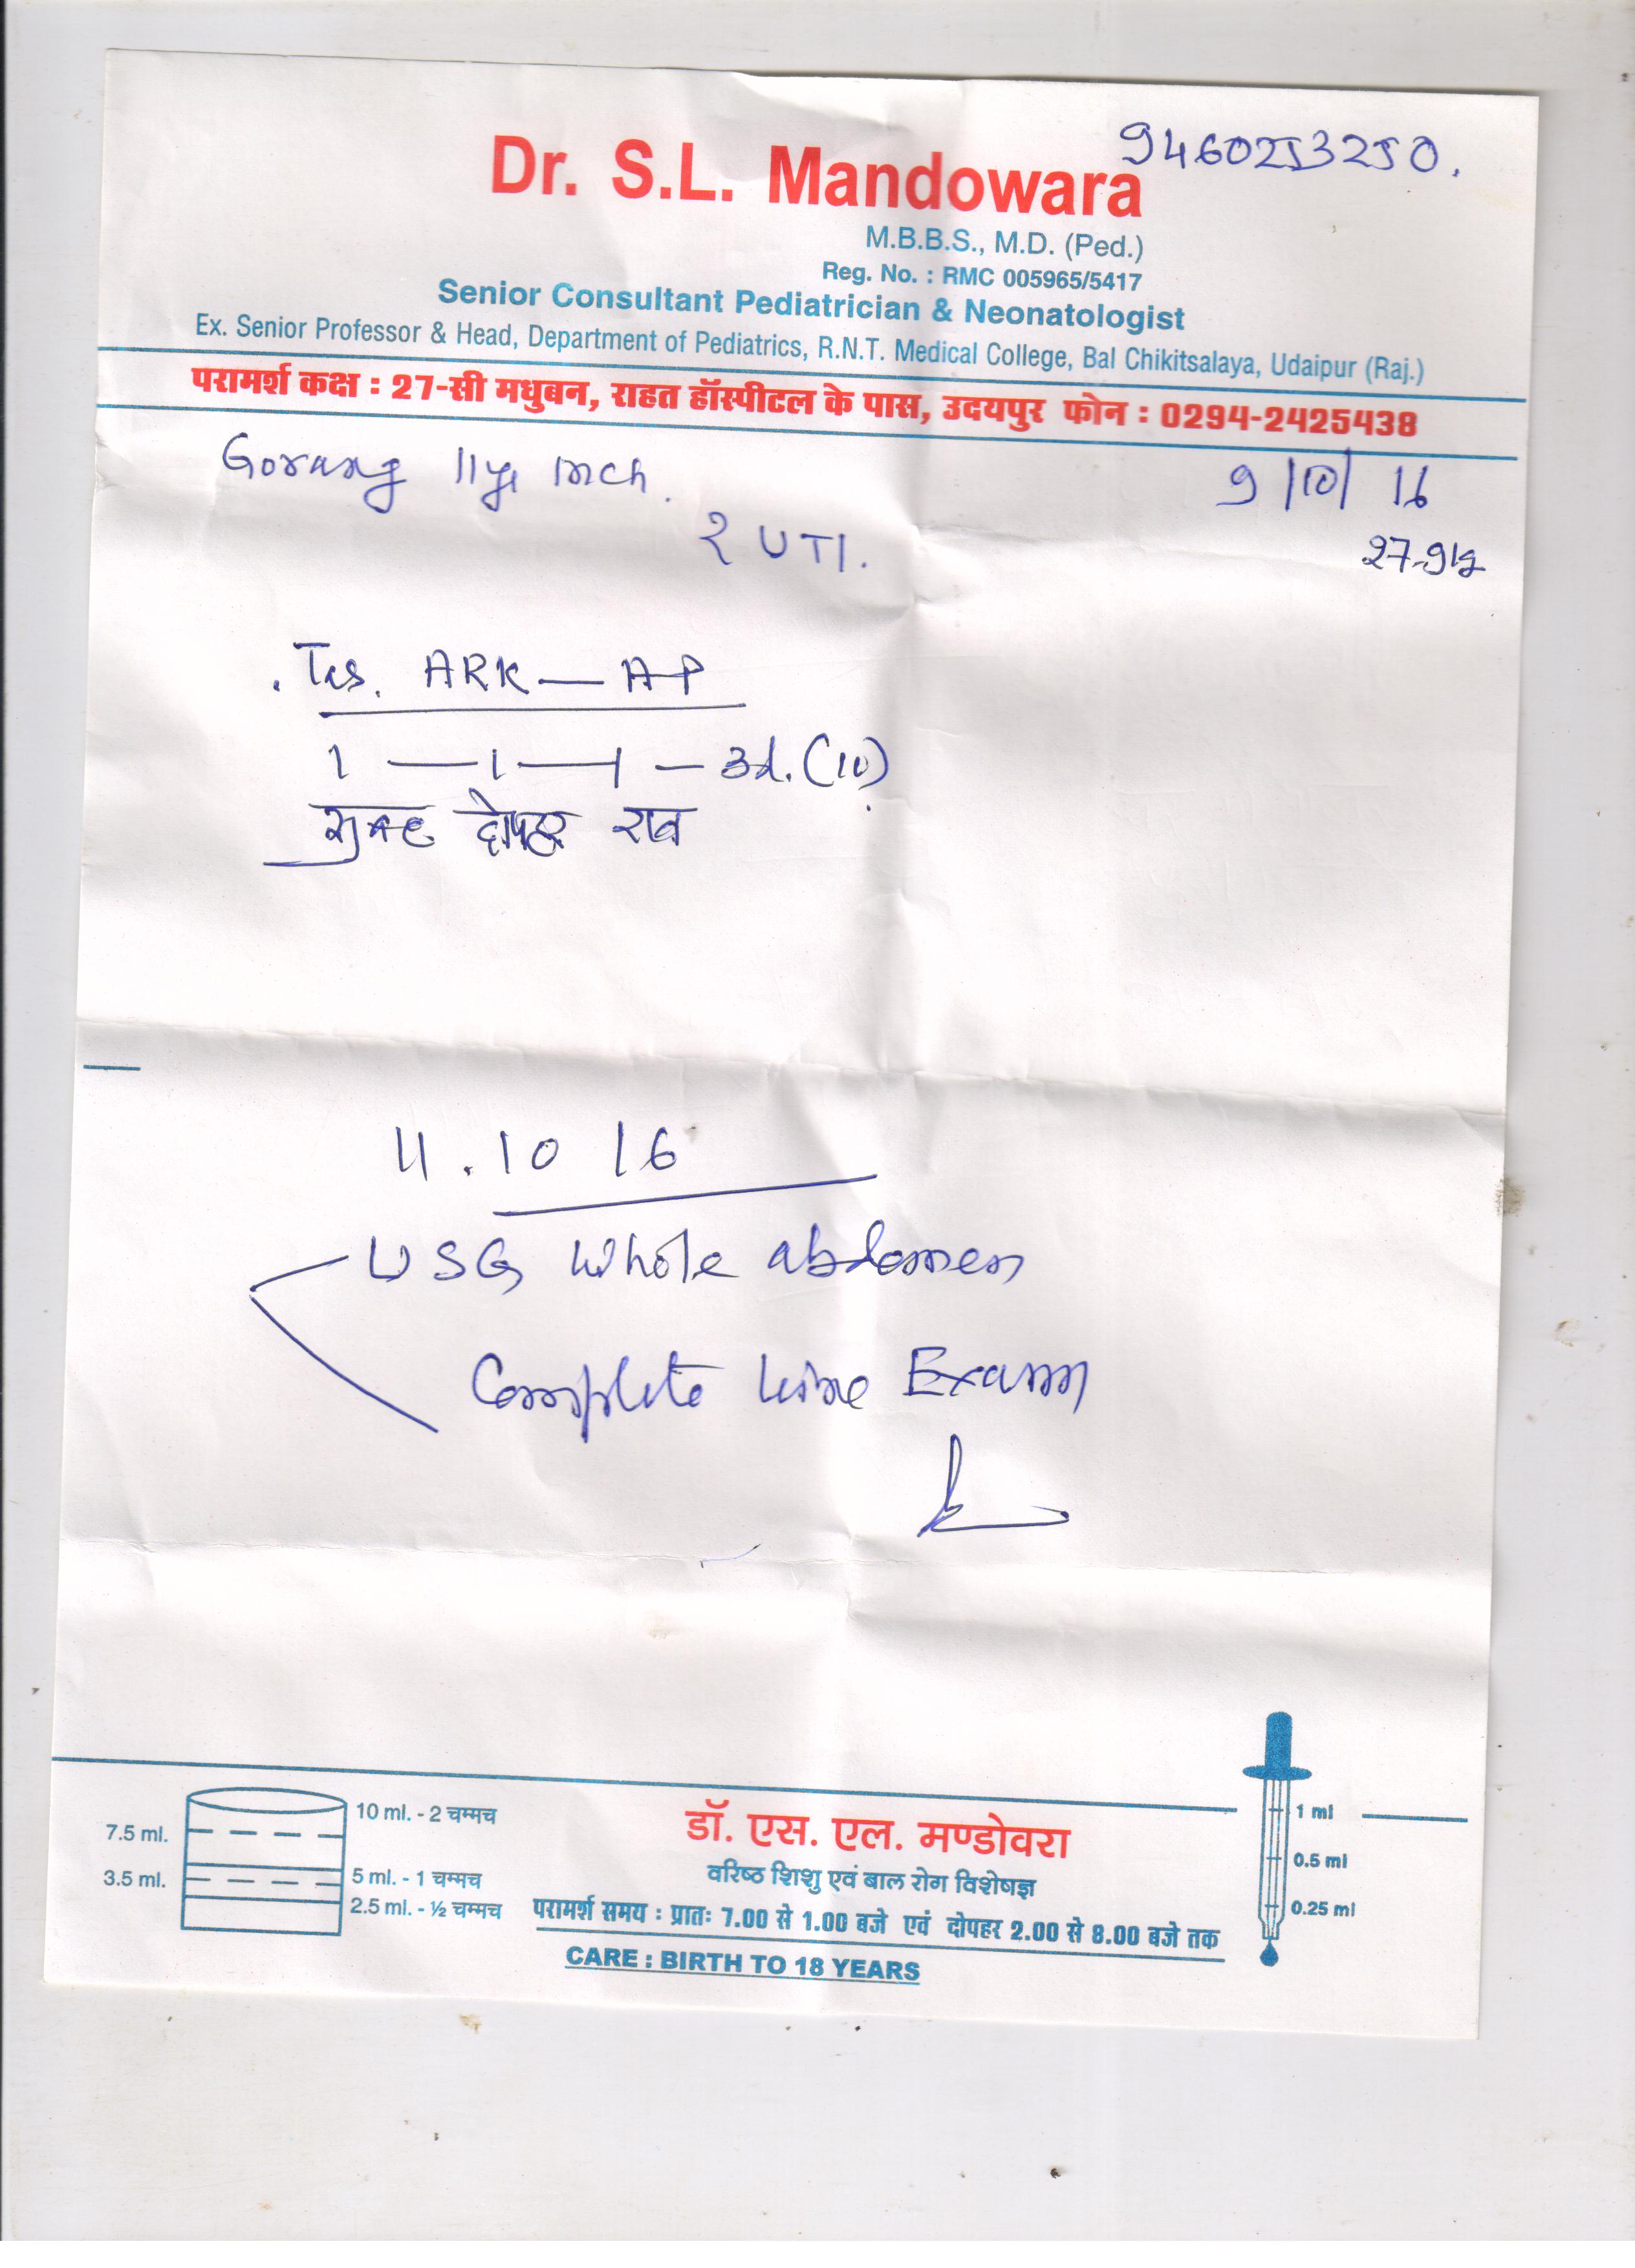 9460253250.
Dr. S.L. Mandowara
M.B.B.S., M.D. (Ped.)
Reg. No. : RMC 005965/5417
Senior Consultant Pediatrician & Neonatologist
Ex. Senior Professor & Head, Department of Pediatrics, R.N.T. Medical College, Bal Chikitsalaya, Udaipur (Raj.)
परामर्श कक्ष : 27-सी मधुबन, राहत हॉस्पीटल के पास, उदयपुर फोन : 0294-2425438
Gorang 11yr mch. 9/10/16
? UTI. 27.9
ARK-AP
1 — 1 — 1 — 3d. (10)
सुबह दोपहर रात
11.10 16
USG Whole abdomen
Complete Urine Exam
10 ml. - 2 चम्मच
7.5 ml.
3.5 ml.
5 ml. - 1 चम्मच
2.5 ml. - ½ चम्मच
डॉ. एस. एल. मण्डोवरा
वरिष्ठ शिशु एवं बाल रोग विशेषज्ञ
परामर्श समय : प्रातः 7.00 से 1.00 बजे एवं दोपहर 2.00 से 8.00 बजे तक
CARE : BIRTH TO 18 YEARS
1 ml
0.5 ml
0.25 ml